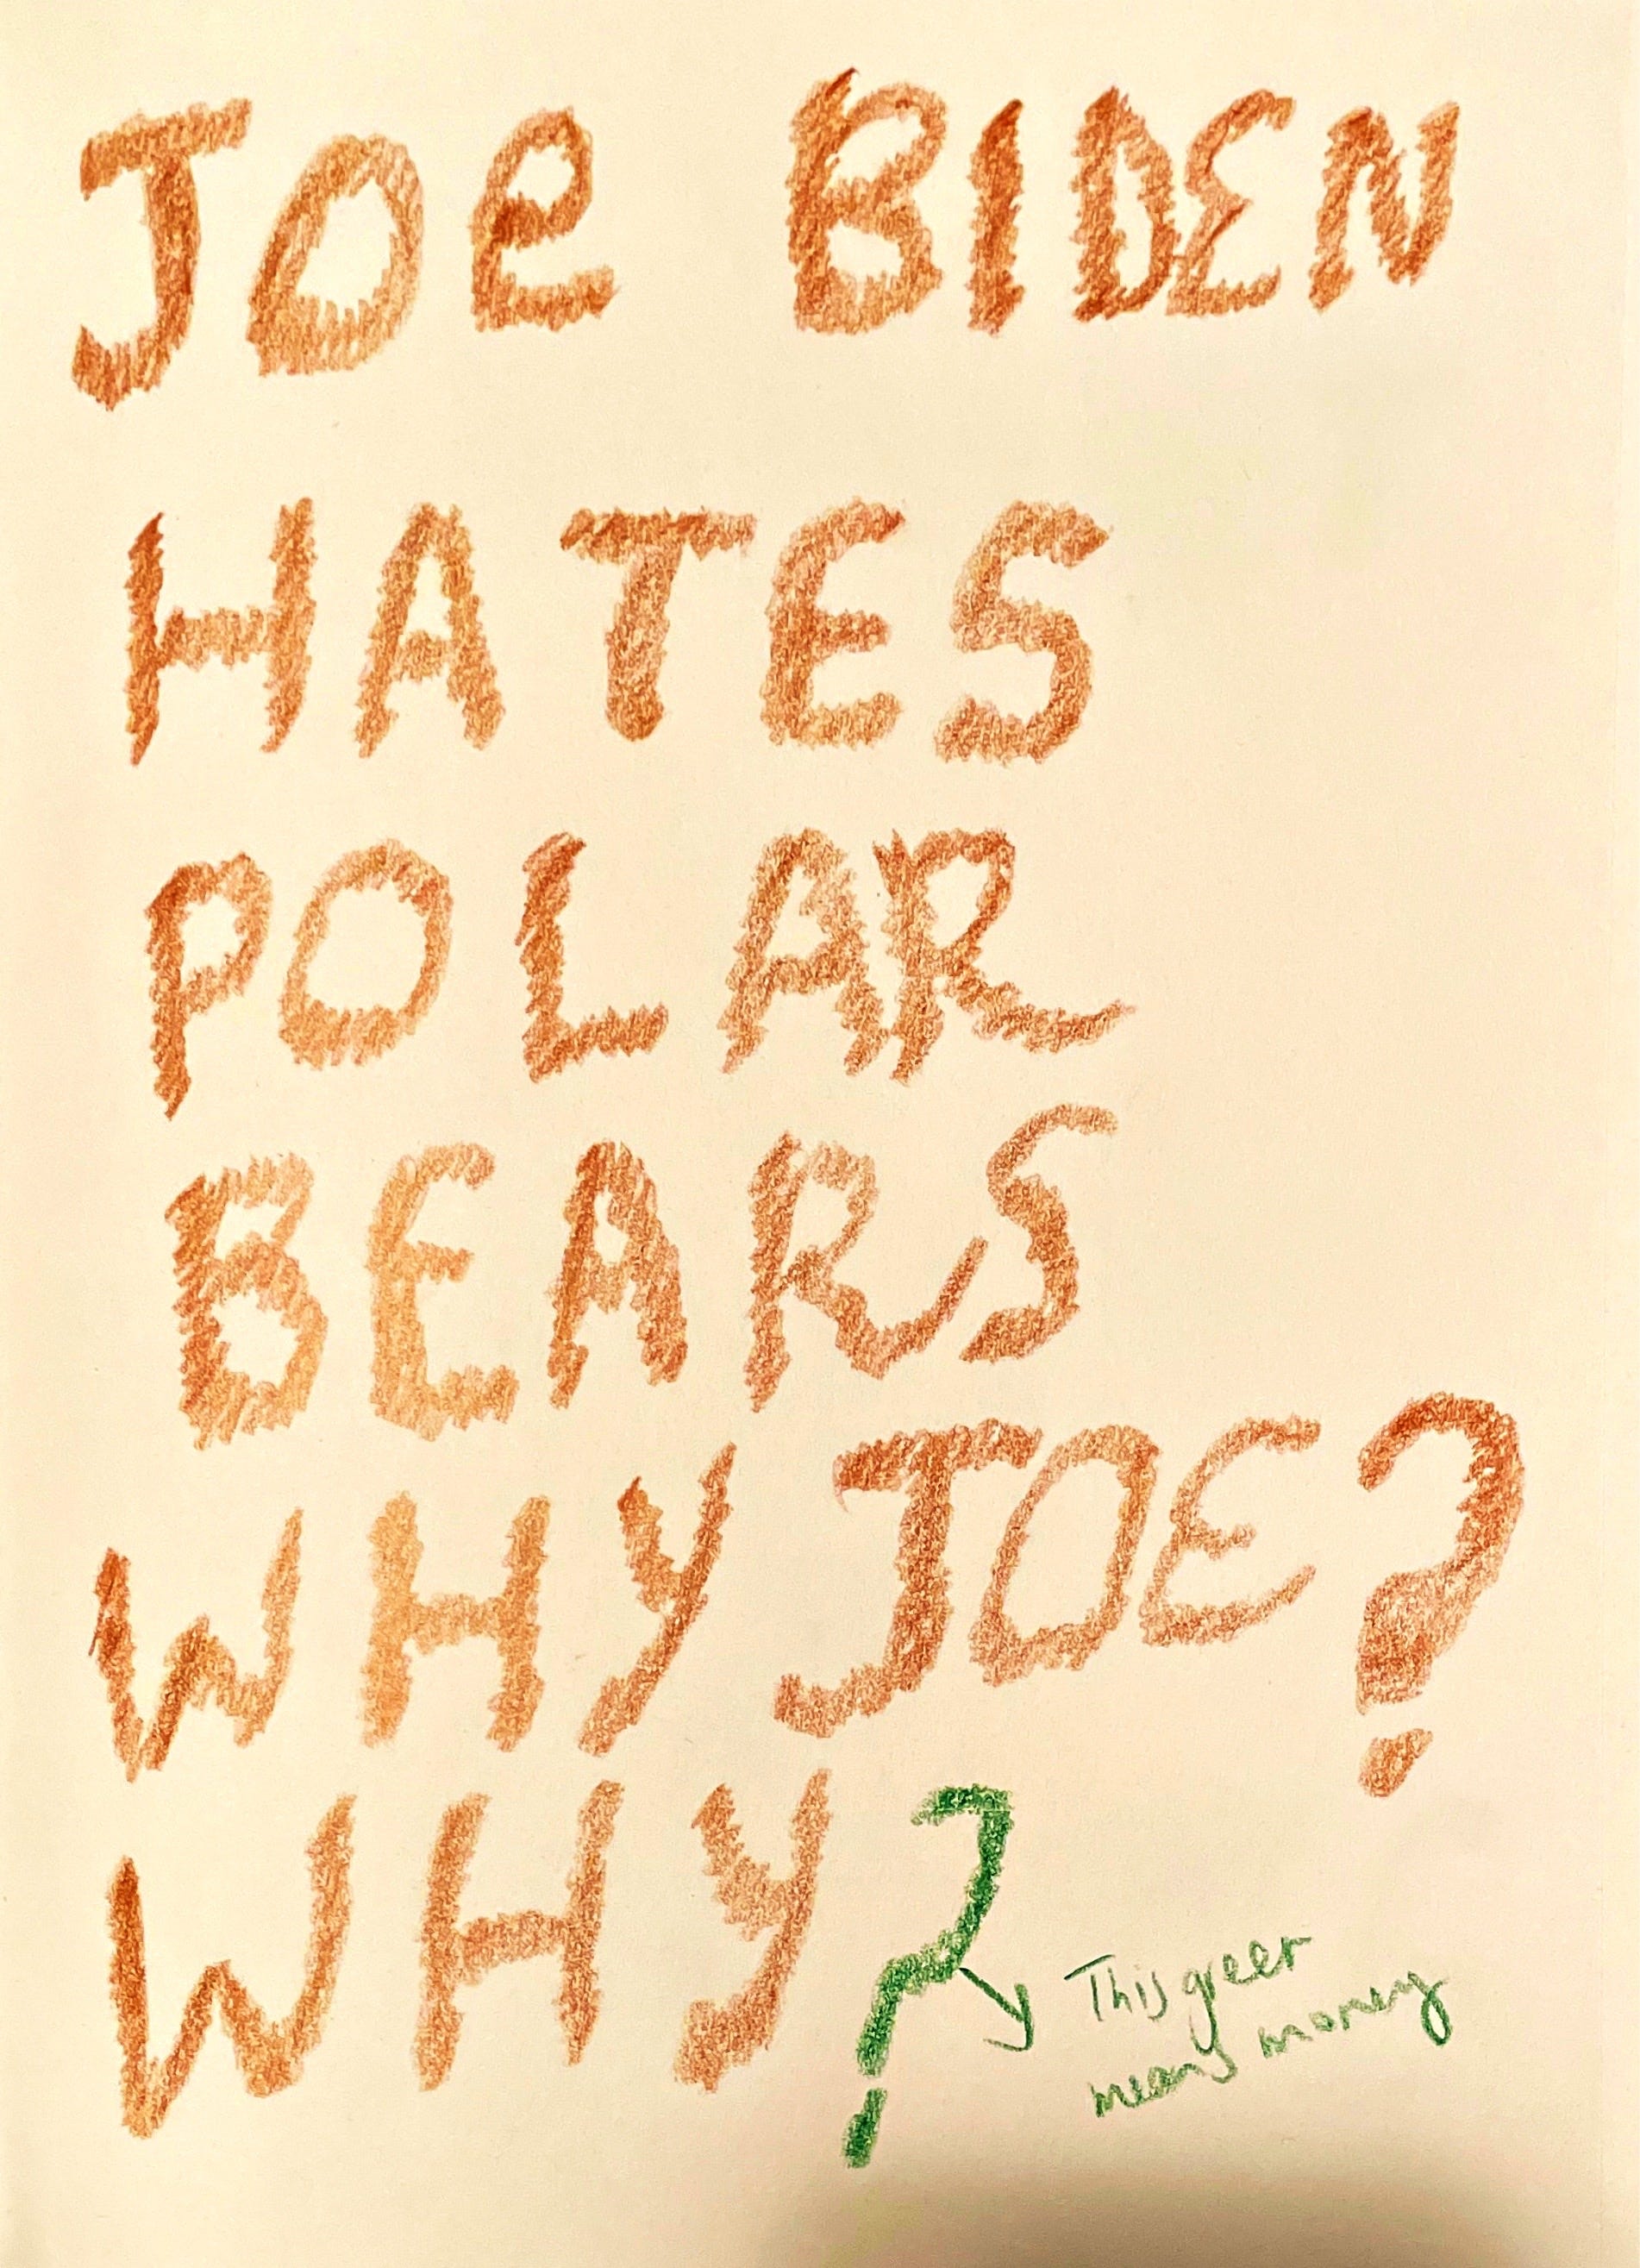 Joe BIDEN
HATES
POLAR
BEARS
WHY JOE?
WHY?
This green
means money